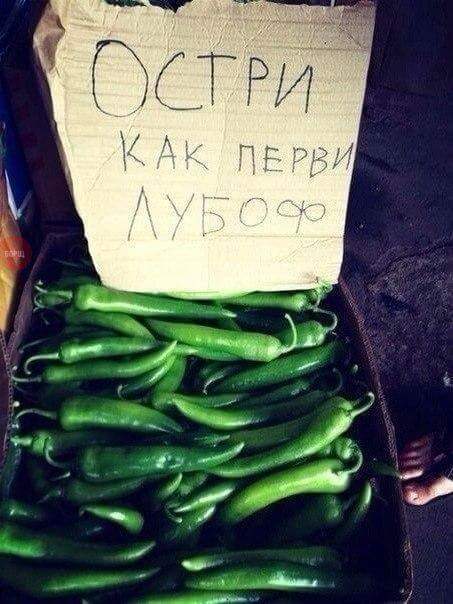 ОСТРИ
КАК ПЕРВИ
ЛУБОФ
БОРЩ